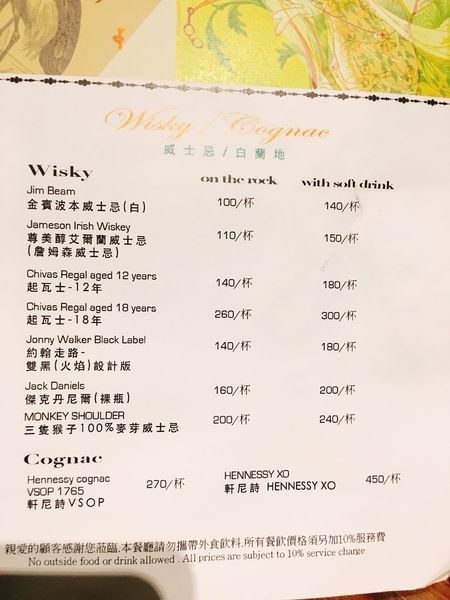 Wisky / Cognac
威士忌/白蘭地
Wisky on the rock with soft drink
Jim Beam
金賓波本威士忌(白) 100/杯 140/杯
Jameson Irish Wiskey
尊美醇艾爾蘭威士忌 110/杯 150/杯
(詹姆森威士忌)
Chivas Regal aged 12 years 140/杯 180/杯
起瓦士-12年
Chivas Regal aged 18 years 260/杯 300/杯
起瓦士-18年
Jonny Walker Black Label 140/杯 180/杯
約翰走路-
雙黑(火焰)設計版
Jack Daniels 160/杯 200/杯
傑克丹尼爾(裸瓶)
MONKEY SHOULDER 200/杯 240/杯
三隻猴子100%麥芽威士忌
Cognac
Hennessy cognac 270/杯
VSOP 1765
軒尼詩VSOP
HENNESSY XO 450/杯
軒尼詩 HENNESSY XO
親愛的顧客感謝您蒞臨,本餐廳請勿攜帶外食飲料,所有餐飲價格須另加10%服務費
No outside food or drink allowed . All prices are subject to 10% service charge